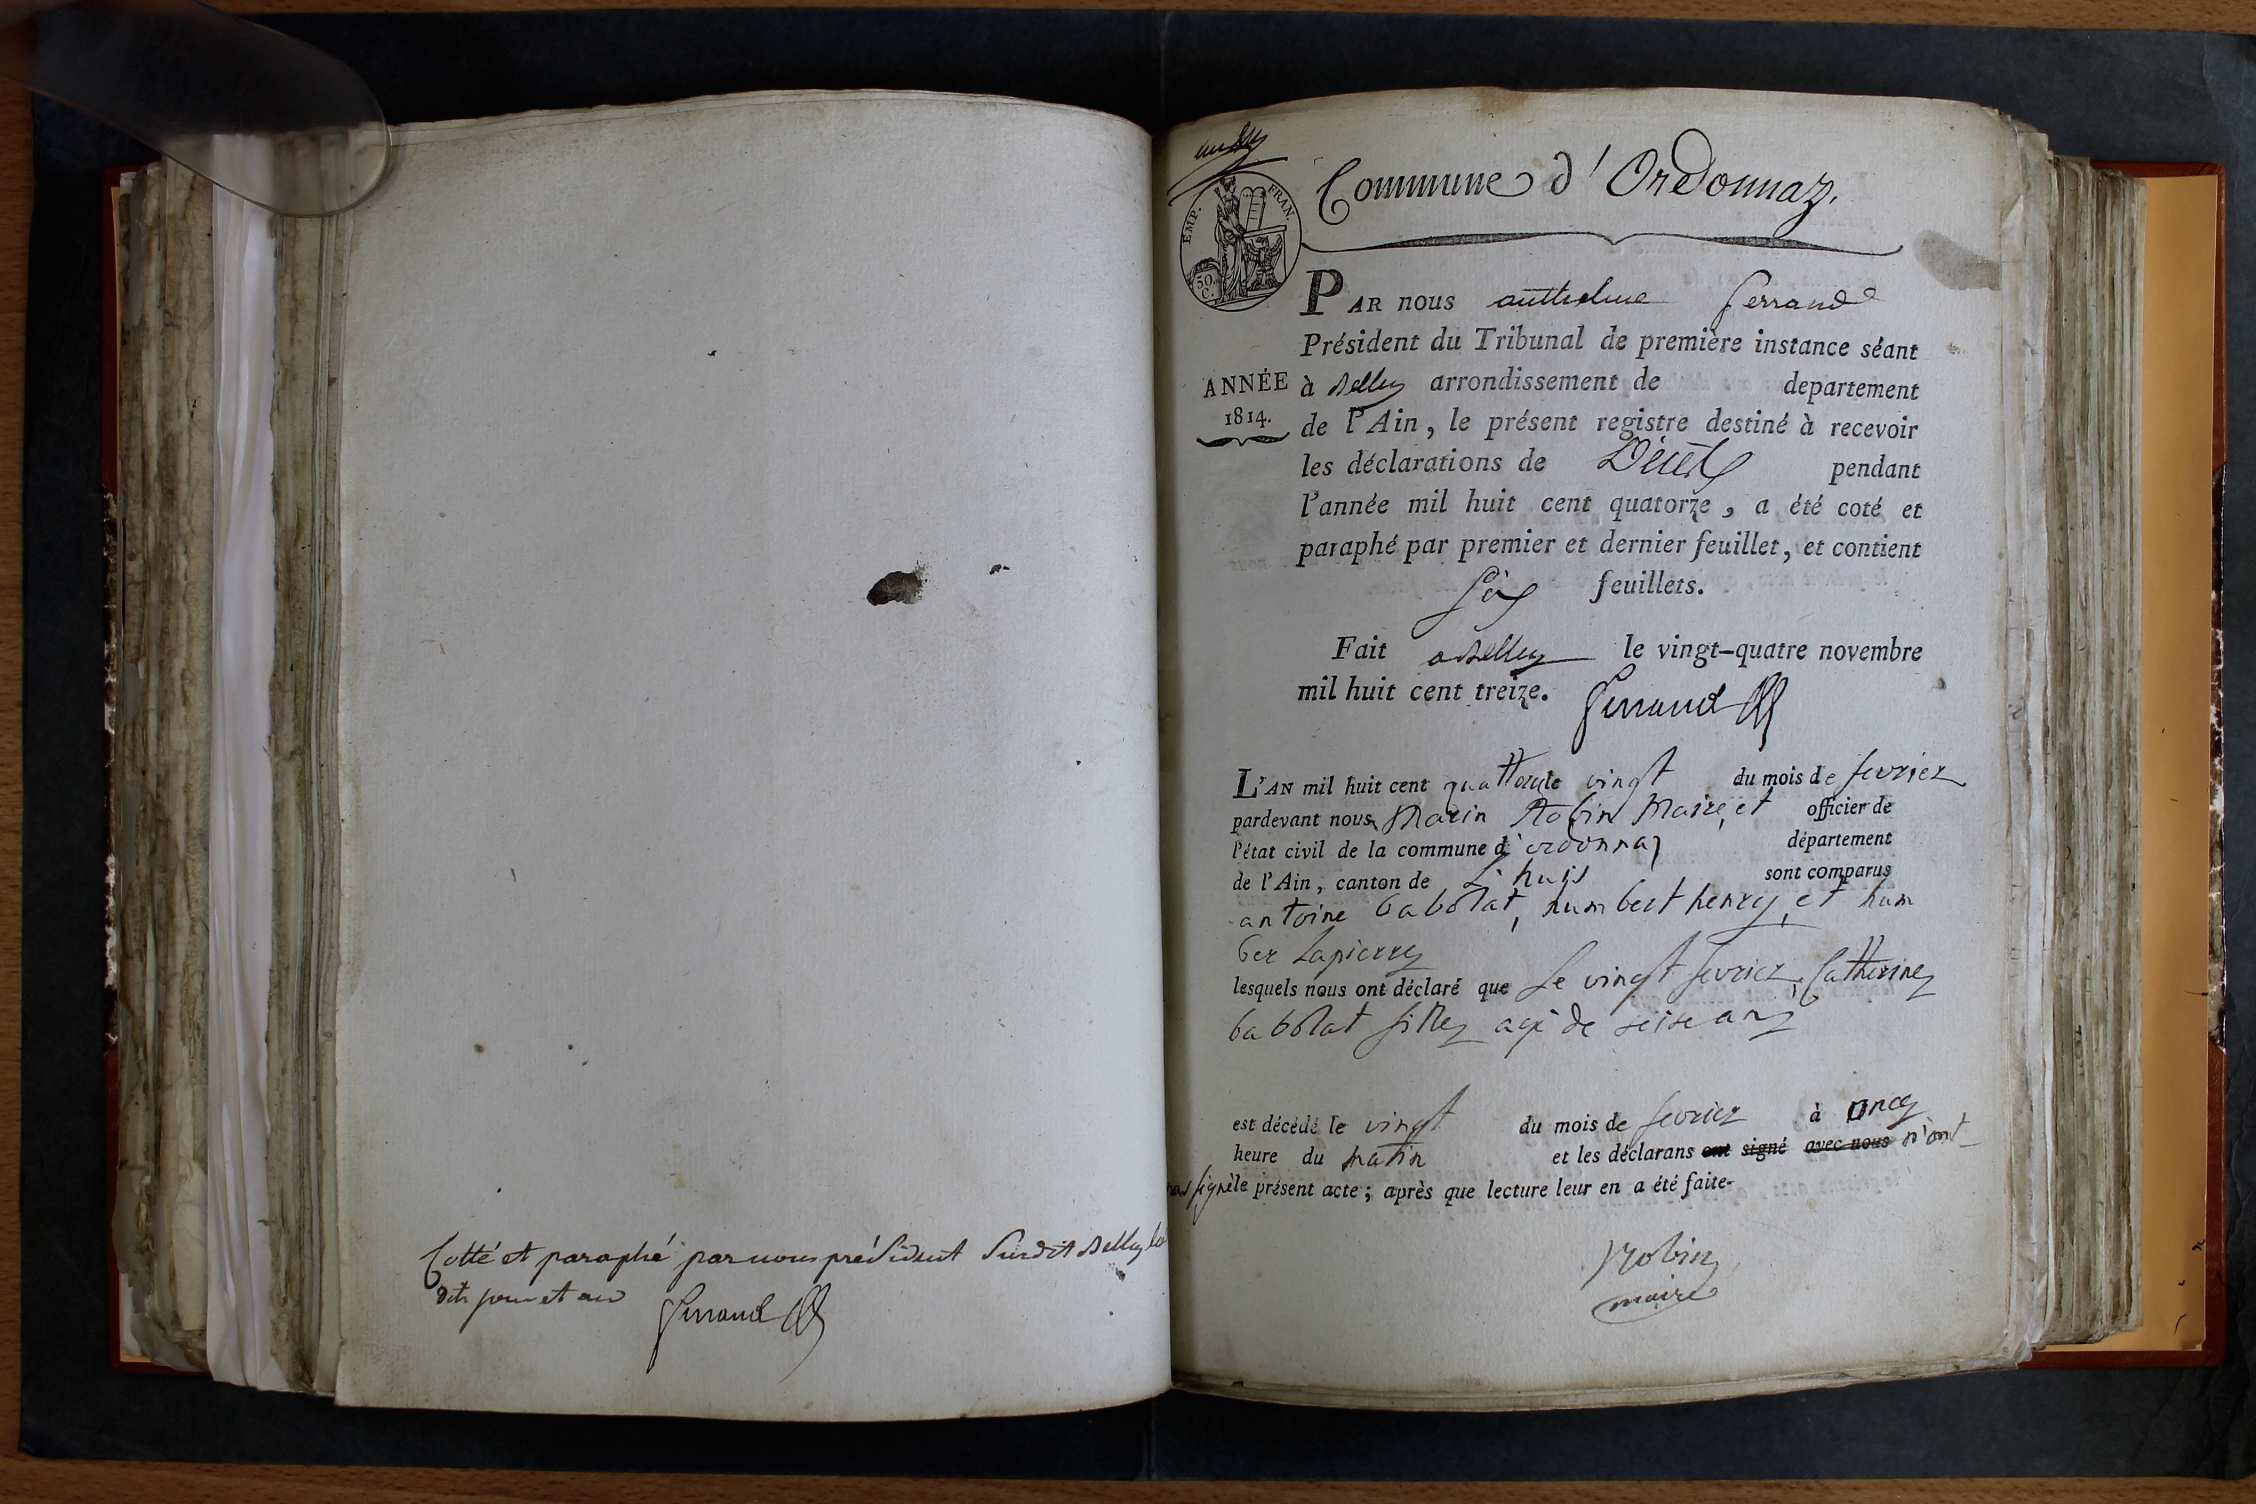 Cotté et paraphé par nous président Susdit Belley les
dits jour et an
Ferrand
EMP. FRAN.
50
C.
Commune d'Ordonnaz.
PAR nous anthelme ferrand
Président du Tribunal de première instance séant
ANNÉE
1814.
à Belley arrondissement de departement
de l'Ain, le présent registre destiné à recevoir
les déclarations de Décès pendant
l'année mil huit cent quatorze, a été coté et
paraphé par premier et dernier feuillet, et contient
six feuillets.
Fait a Belley le vingt-quatre novembre
mil huit cent treize.
Ferrand
L'AN mil huit cent quattorze vingt du mois de fevrier
pardevant nous Marin Robin Maire, et officier de
l'état civil de la commune d'ordonnaz département
de l'Ain, canton de L'huis sont comparus
antoine babolat, humbert henry, et hum
ber Lapierre
lesquels nous ont déclaré que Le vingt fevrier, Catherine
babolat fille agé de seise ans
est décédé le vingt du mois de fevrier à once
heure du matin et les déclarans ont signé avec nous n'ont
pas signé le présent acte; après que lecture leur en a été faite-
Robin
maire